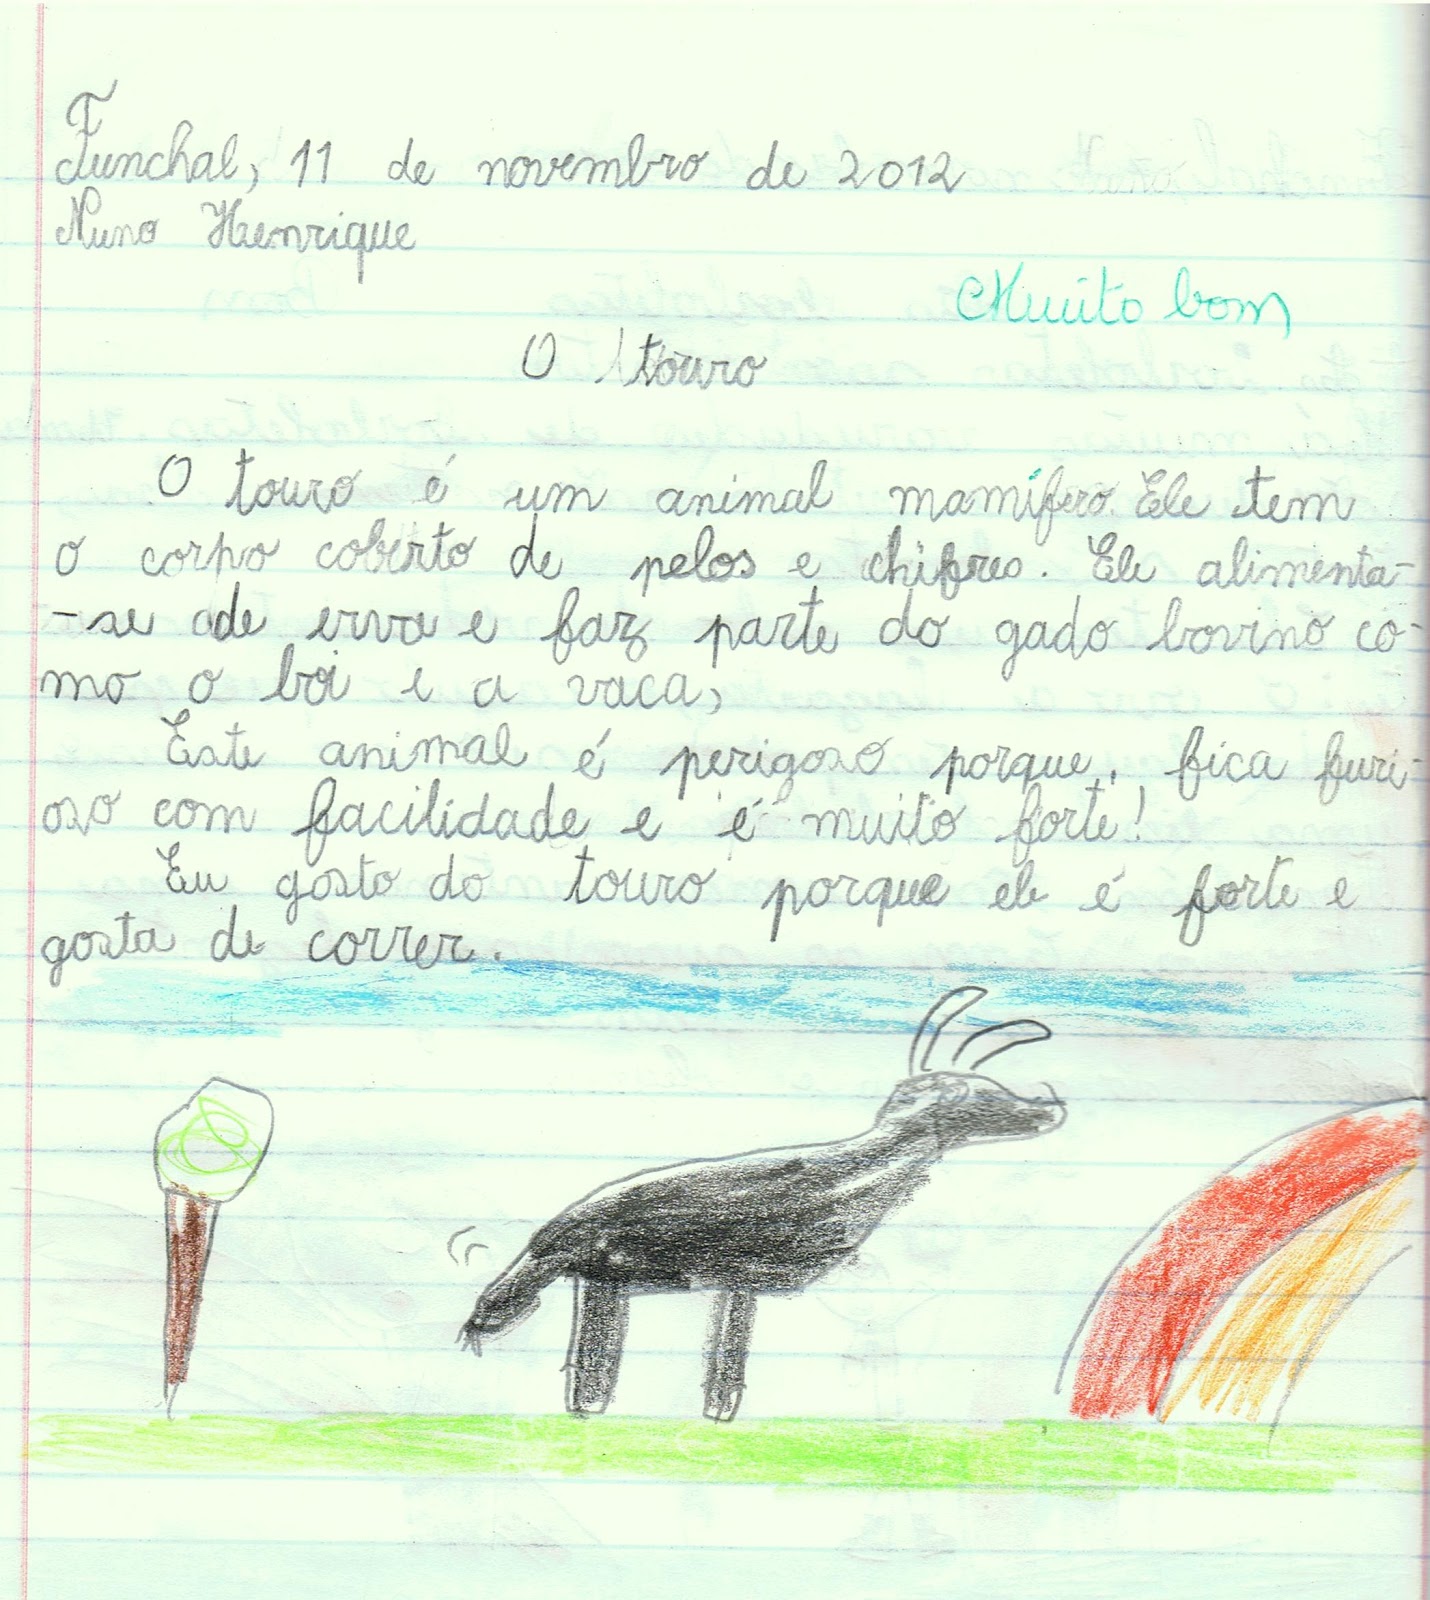 Funchal, 11 de novembro de 2012
Nuno Henrique
Muito bom
O touro
O touro é um animal mamífero. Ele tem
o corpo coberto de pelos e chifres. Ele alimenta-
-se de erva e faz parte do gado bovino co-
mo o boi e a vaca,
Este animal é perigoso porque, fica furi-
oso com facilidade e é muito forte!
Eu gosto do touro porque ele é forte e
gosta de correr.